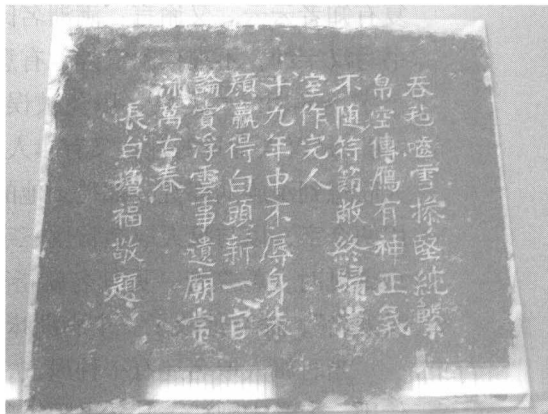 吞毡嚙雪操堅純繫
帛空傳鴈有神正氣
不随符節敝終歸漢
室作完人
十九年中不辱身朱
顏贏得白頭新一官
論賞浮雲事遺廟常
萬古春
長白增福敬題